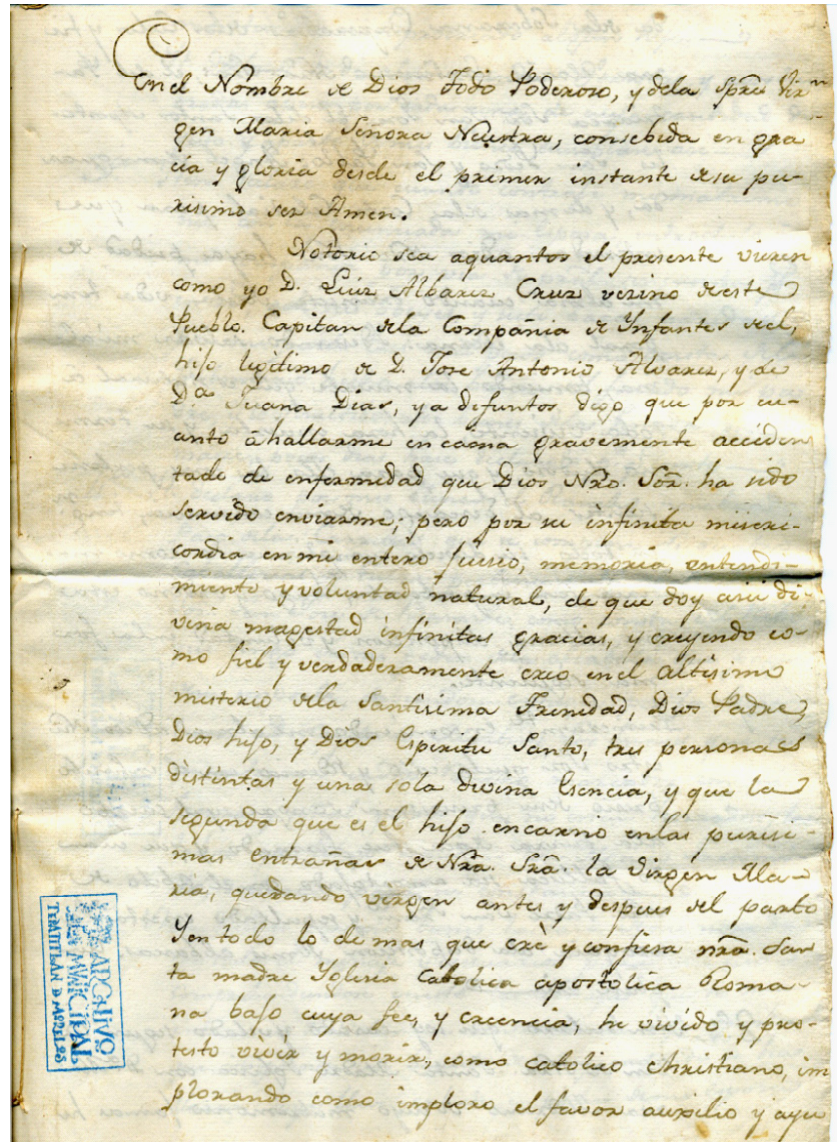 En el Nombre de Dios Todo Poderoso, y dela Sprê Vir
gen Maria Señora Nuestra, consebida en gra
cia y gloria desde el primer instante desu pu-
risimo ser Amen.
Notorio sea aquantos el presente vieren
como yo D. Luiz Albarez Cruz vezino deeste
Pueblo. Capitan dela Compañia de Ynfantes del,
hijo legitimo de D. Jose Antonio Alvarez, y de
Dª Juana Dias, ya defuntos digo que por cu-
anto â hallarme en cama gravemente acciden
tado de enfermedad que Dios Nrô. Sôr. ha sido
servido enviarme; pero por su infinita miseri-
cordia en mi entero juisio, memoria, entendi-
miento y voluntad natural, de que doy asu di-
vina magestad infinitas gracias, y creyendo co-
mo fiel y verdaderamente creo en el Altisimo
misterio dela Santisima Trenidad, Dios Padre,
Dios hijo, y Dios Espiritu Santo, tres personas
distintas y una sola divina Esencia, y que la
segunda que es el hijo encarnó enlas purisi-
mas entrañas de Nrâ. Srâ. la Virgen Ma-
ria, quedando virgen antes y despues del parto
Yen todo lo de mas que crê y confiesa nrâ. San
ta madre Yglesia Catolica apostolica Roma-
na bajo cuya fee, y creencia, he vivido y pro-
testo vivir y morir, como catolico christiano, im
plorando como imploro el favor auxilio y ayu
ARCHIVO
MUNICIPAL